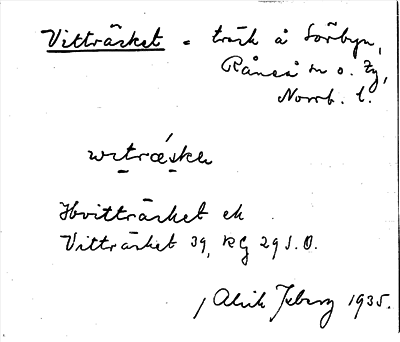 Vitträsket - träsk å Sörbyn,
Råneå sn o. tg,
Norrb. l.
witræskɛ
Hvitträsket ek
Vitträsket 39, KG 29 S.O.
Alrik 1935.